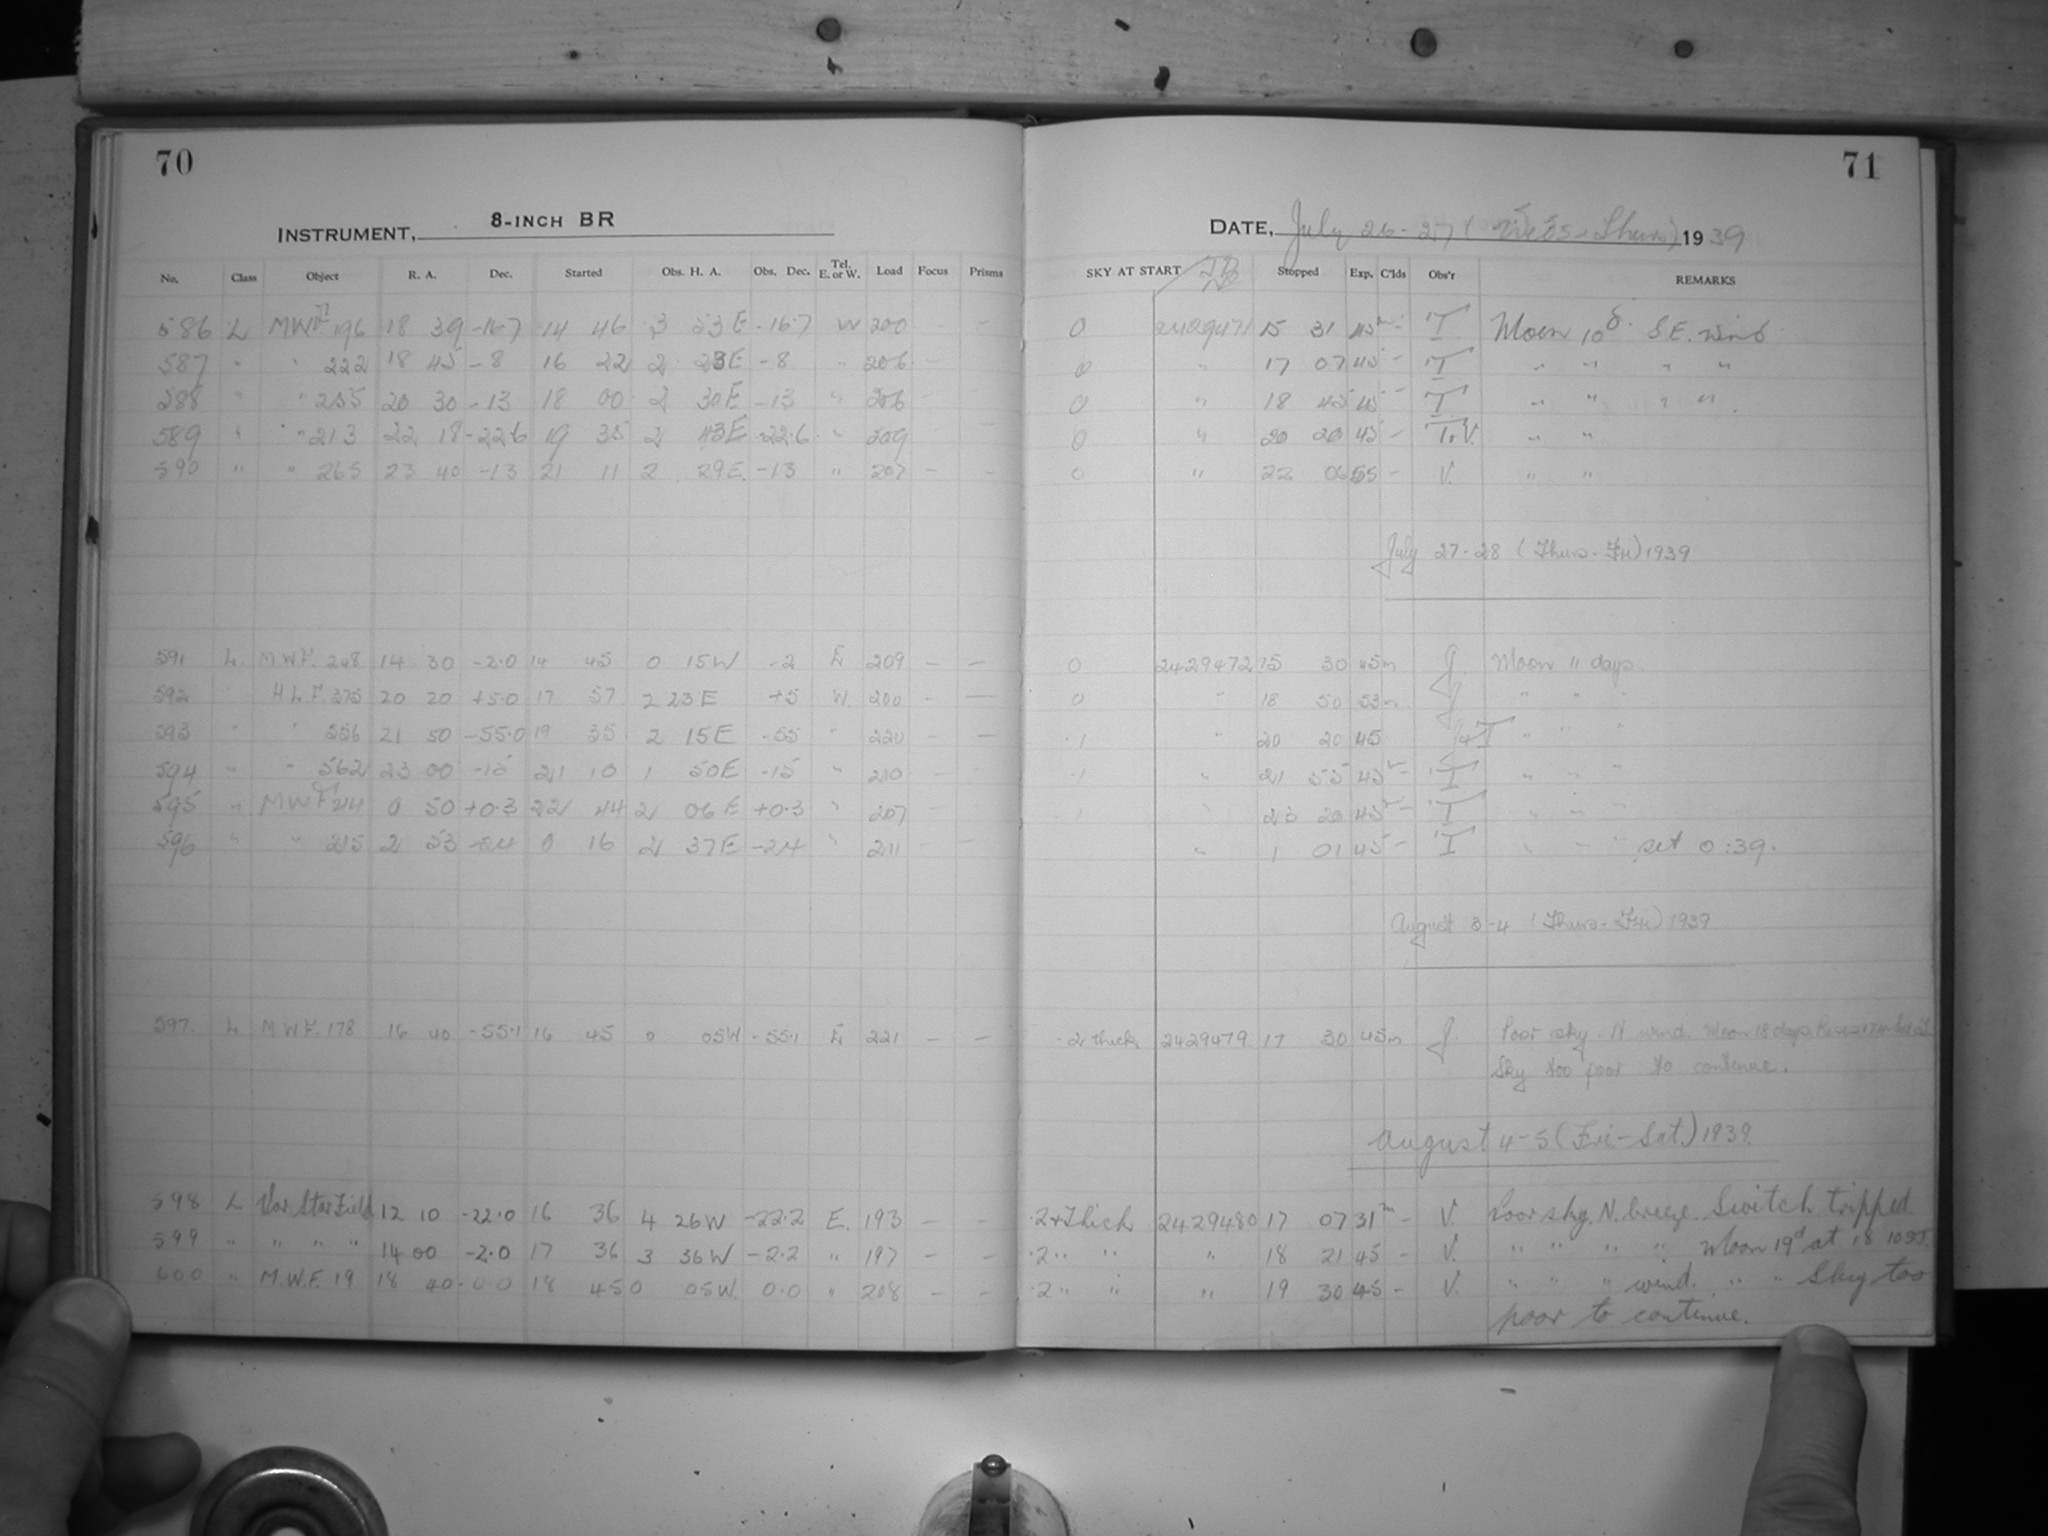 70
INSTRUMENT, 8-INCH BR
No. Class Object R. A. Dec. Started Obs. H. A. Obs. Dec. Tel. E. or W. Load Focus Prisms
586 L MWF 196 18 39 -16.7 14 46 3 53 E -16.7 W 200 — —
587 " " 222 18 45 -8 16 22 2 23 E -8 " 206 —
588 " " 255 20 30 -13 18 00 2 30 E -13 " 206 —
589 " " 213 22 18 -22.6 19 35 2 43 E -22.6 " 209 —
590 " " 265 23 40 -13 21 11 2 29 E. -13 " 207 — —
591 L. M.W.F. 248 14 30 -2.0 14 45 0 15W -2 E 209 — —
592 H.L.F. 375 20 20 +5.0 17 57 2 23 E +5 W. 200 — —
593 " " 256 21 50 -55.0 19 35 2 15 E -55 " 220 — —
594 " " 562 23 00 -15 21 10 1 50 E -15 " 210 —
595 " MWF 244 0 50 +0.3 22 44 2 06 E +0.3 " 207 —
596 " " 215 2 53 0 16 2 37 E -24 " 211 —
597. L M.W.F. 178 16 40 -55.1 16 45 0 05W -55.1 E 221 — —
598 L Var Star Field 12 10 -22.0 16 36 4 26W -22.2 E. 193 — —
599 " " " " 14 00 -2.0 17 36 3 36W -2.2 " 197 — —
600 " M.W.F. 19 18 40 0.0 18 45 0 05W. 0.0 " 208 — —
71
DATE, July 26-27 (Weds-Thurs) 1939
SKY AT START JD Stopped Exp. C'lds Obs'r REMARKS
0 2429471 15 31 45m — T Moon 10d. S.E. wind
0 " 17 07 45 — T " " " "
0 " 18 45 45 — T " " " ".
0 " 20 20 45 — T.V. " "
0 " 22 06 55 — V. " "
July 27-28 (Thurs-Fri) 1939
0 2429472 15 30 45m J. Moon 11 days.
0 " 18 50 53m J " " "
.1 " 20 20 45 J/T " " "
.1 " 21 55 45 — T " " "
.1 " 23 20 45 — T " " "
" 1 01 45 — T " " " set 0:39.
August 3-4 (Thurs-Fri) 1939
.2 thick 2429479 17 30 45m J. Poor sky. N wind. Moon 18 days
Sky too poor to continue.
August 4-5 (Fri-Sat.) 1939
.2+Thick 2429480 17 07 31m — V. Poor sky. N. breeze. Switch tripped
.2 " " " 18 21 45 — V. " " " " Moon 19d at 18 10
.2 " " " 19 30 45 — V. " " " wind. " " Sky too
poor to continue.